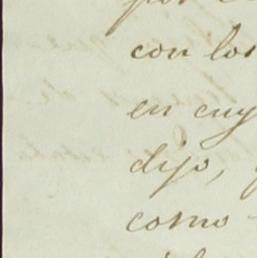 por
con los
en cuy
dijo,
como